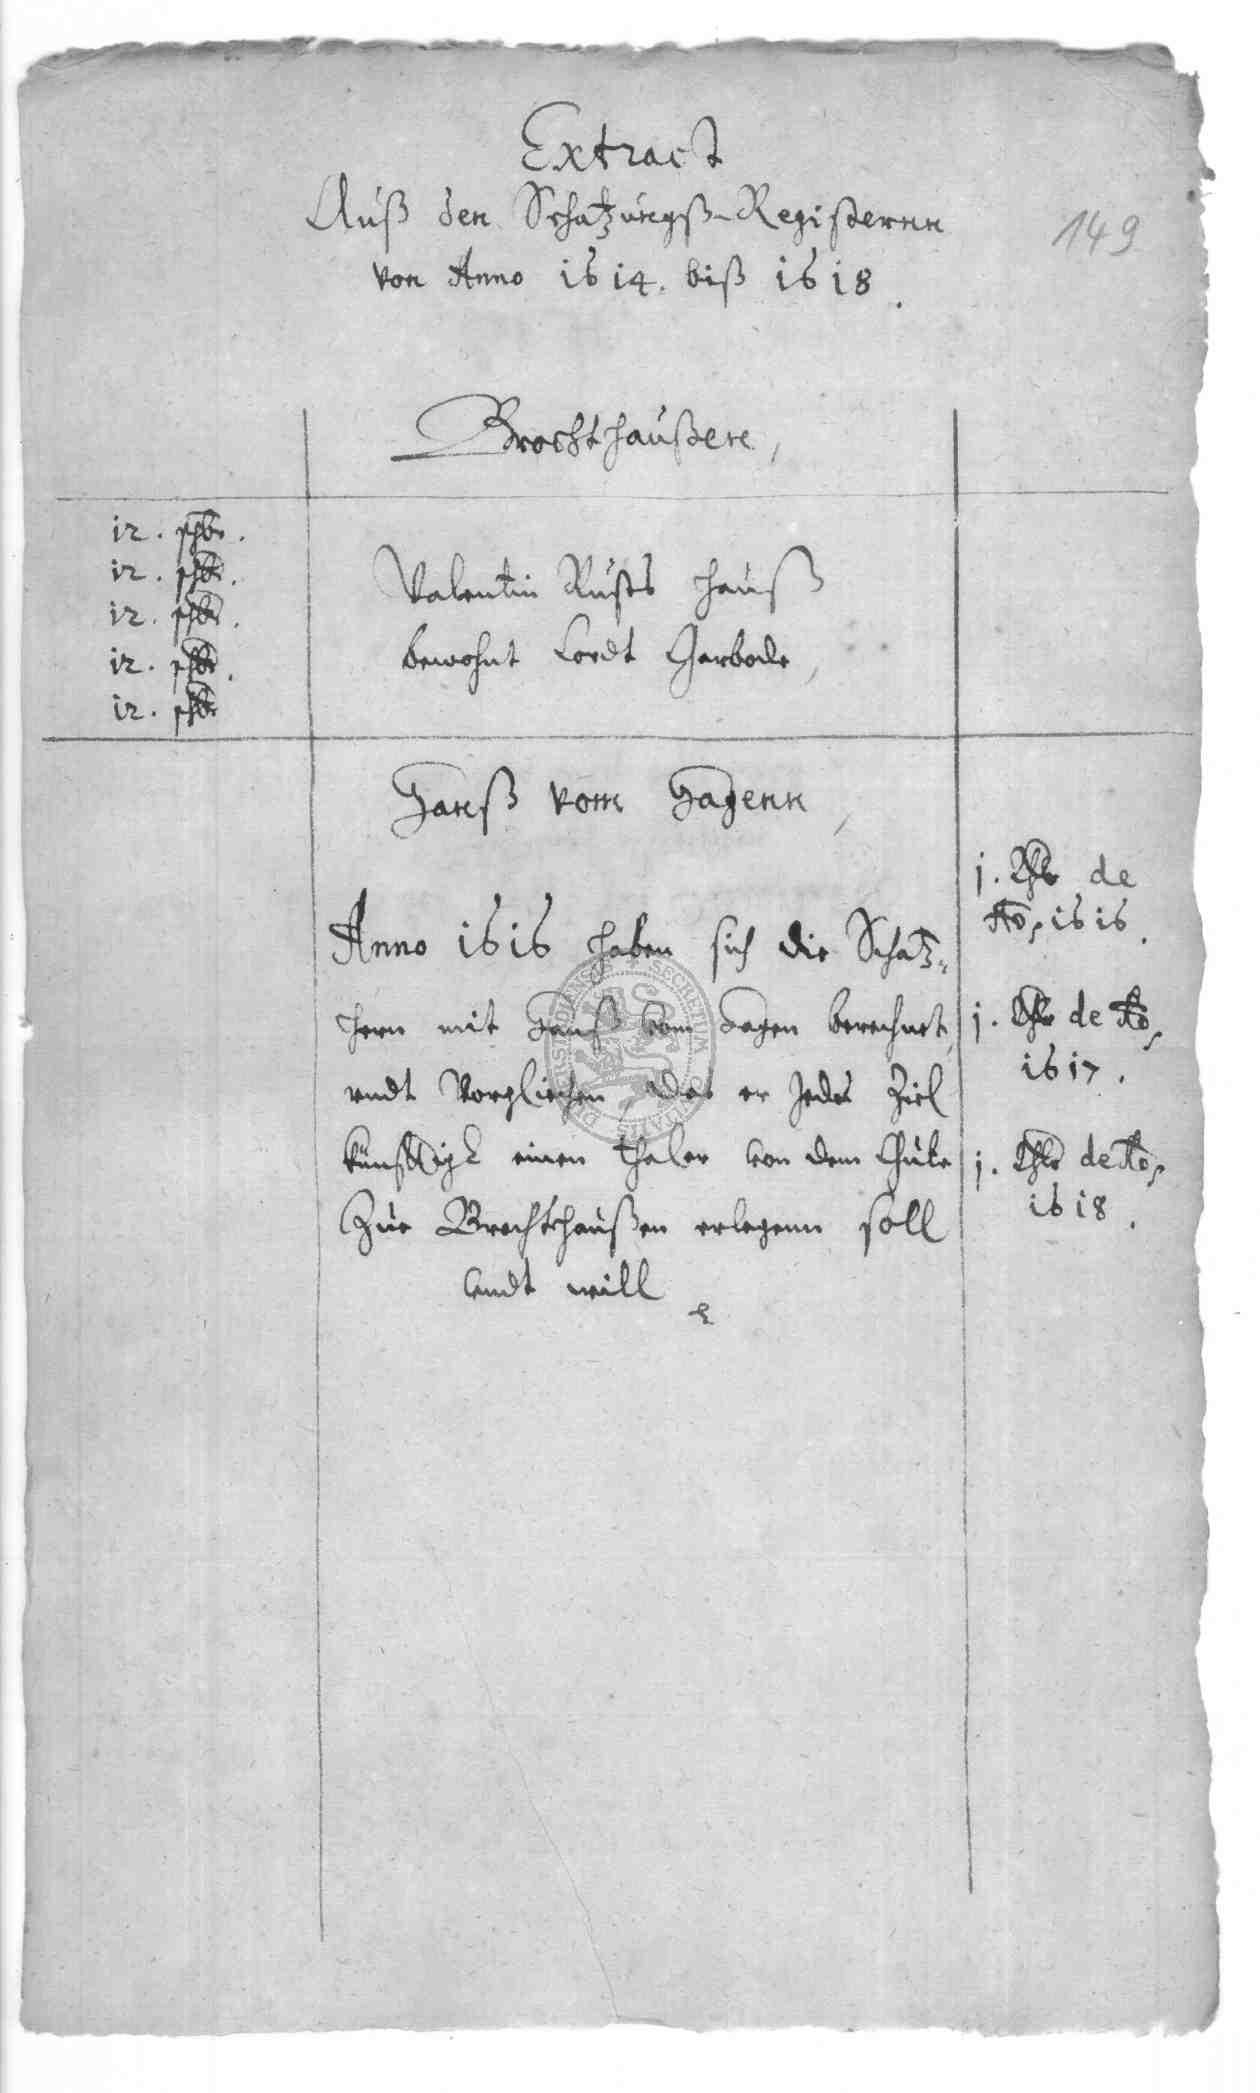 Extract
Auß den Schatzungß-Registernn
149
von Anno 1614. biß 1618.
Brochthaußenn,
12. schbr.
12. schbr.
12. schbr.
12. schbr.
12. schbr
Valentin Rusts hauß
bewohnt Cordt Gerbode,
Hanß vom Hagenn,
Anno 1616 haben sich die Schatz-
hern mit Hanß vom Hagen berechnet,
vndt Vorgliechen, das er Jedes Ziel
künfftigk einen thaler von dem Gute
Zue Brochthaußen erlegenn soll
vndt will
j. Thlr de
Ao, 1616.
j. Thlr de Ao,
1617.
j. Thlr de Ao,
1618.
SECRETUM